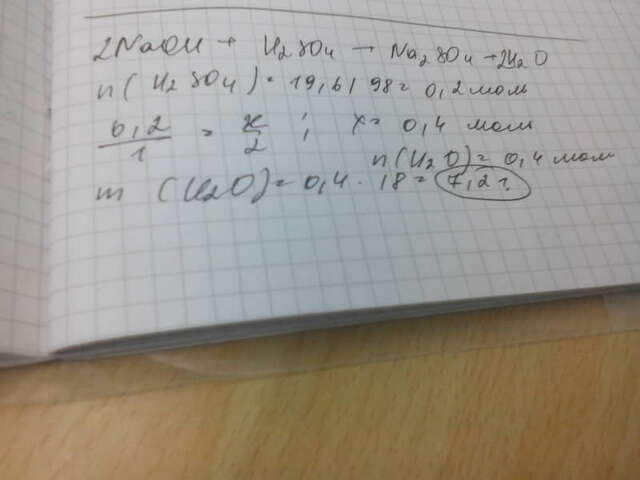 2NaOH + H2SO4 → Na2SO4 + 2H2O
n(H2SO4) = 19,6/98 = 0,2 моль
0,2/1 = x/2 ; x = 0,4 моль
n(H2O) = 0,4 моль
m (H2O) = 0,4 · 18 = 7,2 г.